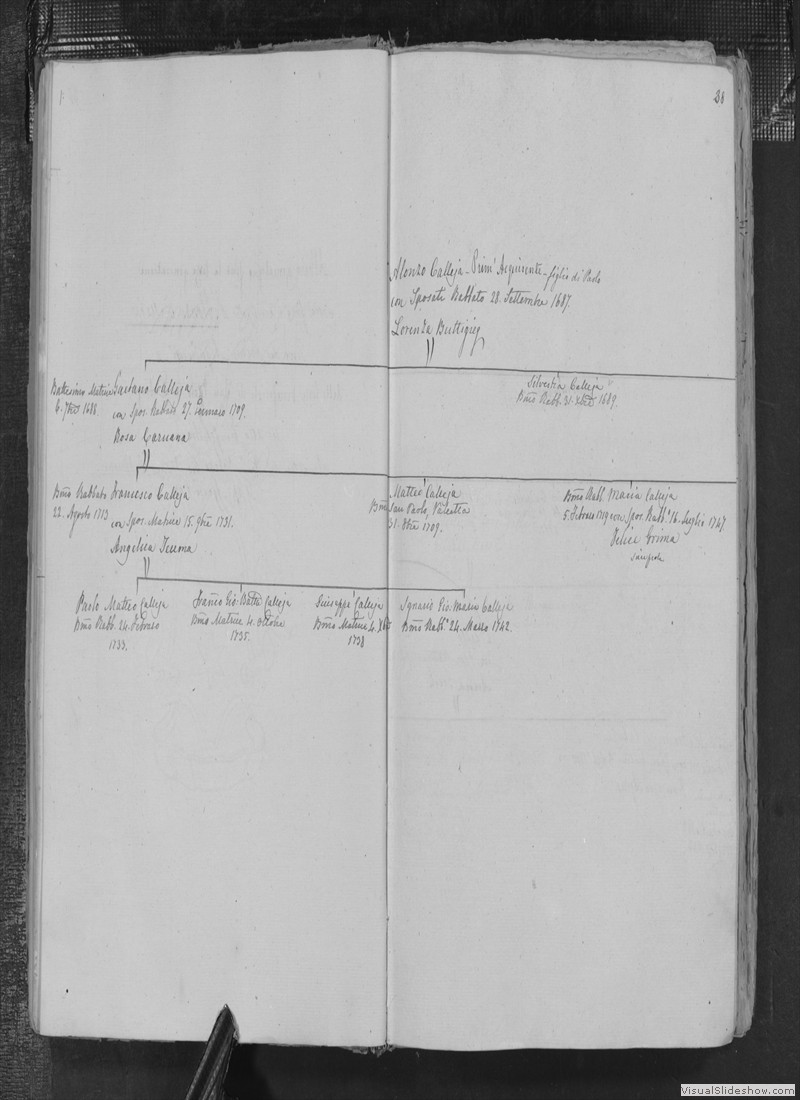 38
Alonzo Calleja - Prim' Acquirente - figlio di Paolo
con Sposati Rabbato 28. Settembre 1687.
Lorenza Buttigieg
Battesimo Matrice Gaetano Calleja
6. 7bre 1688. con Spos. Rabbato 27. Gennaro 1709.
Rosa Caruana
Silvestra Calleja
Bmo Rabb. 31. Xbre 1689.
Bmo Rabbato Francesco Calleja
22. Agosto 1713 con Spos. Matrice 15. 9bre 1731.
Angelica
Matteo Calleja
Bmo San Paolo, Valletta
31. 1709.
Bmo Rabb. Maria Calleja
5. Febraro 1719 con Spos. Rabb. 16. Luglio 1747.
Felice
Paolo Matteo Calleja
Bmo Rabb. 24. Febraro
1733.
Franco Gio: Batta Calleja
Bmo Matrice 4. Octobre
1735.
Giuseppe Calleja
Bmo Matrice 4. Xbre
1738
Ignazio Gio: Maria Calleja
Bmo Rabb. 24. Marzo 1742.
VisualSlideshow.com